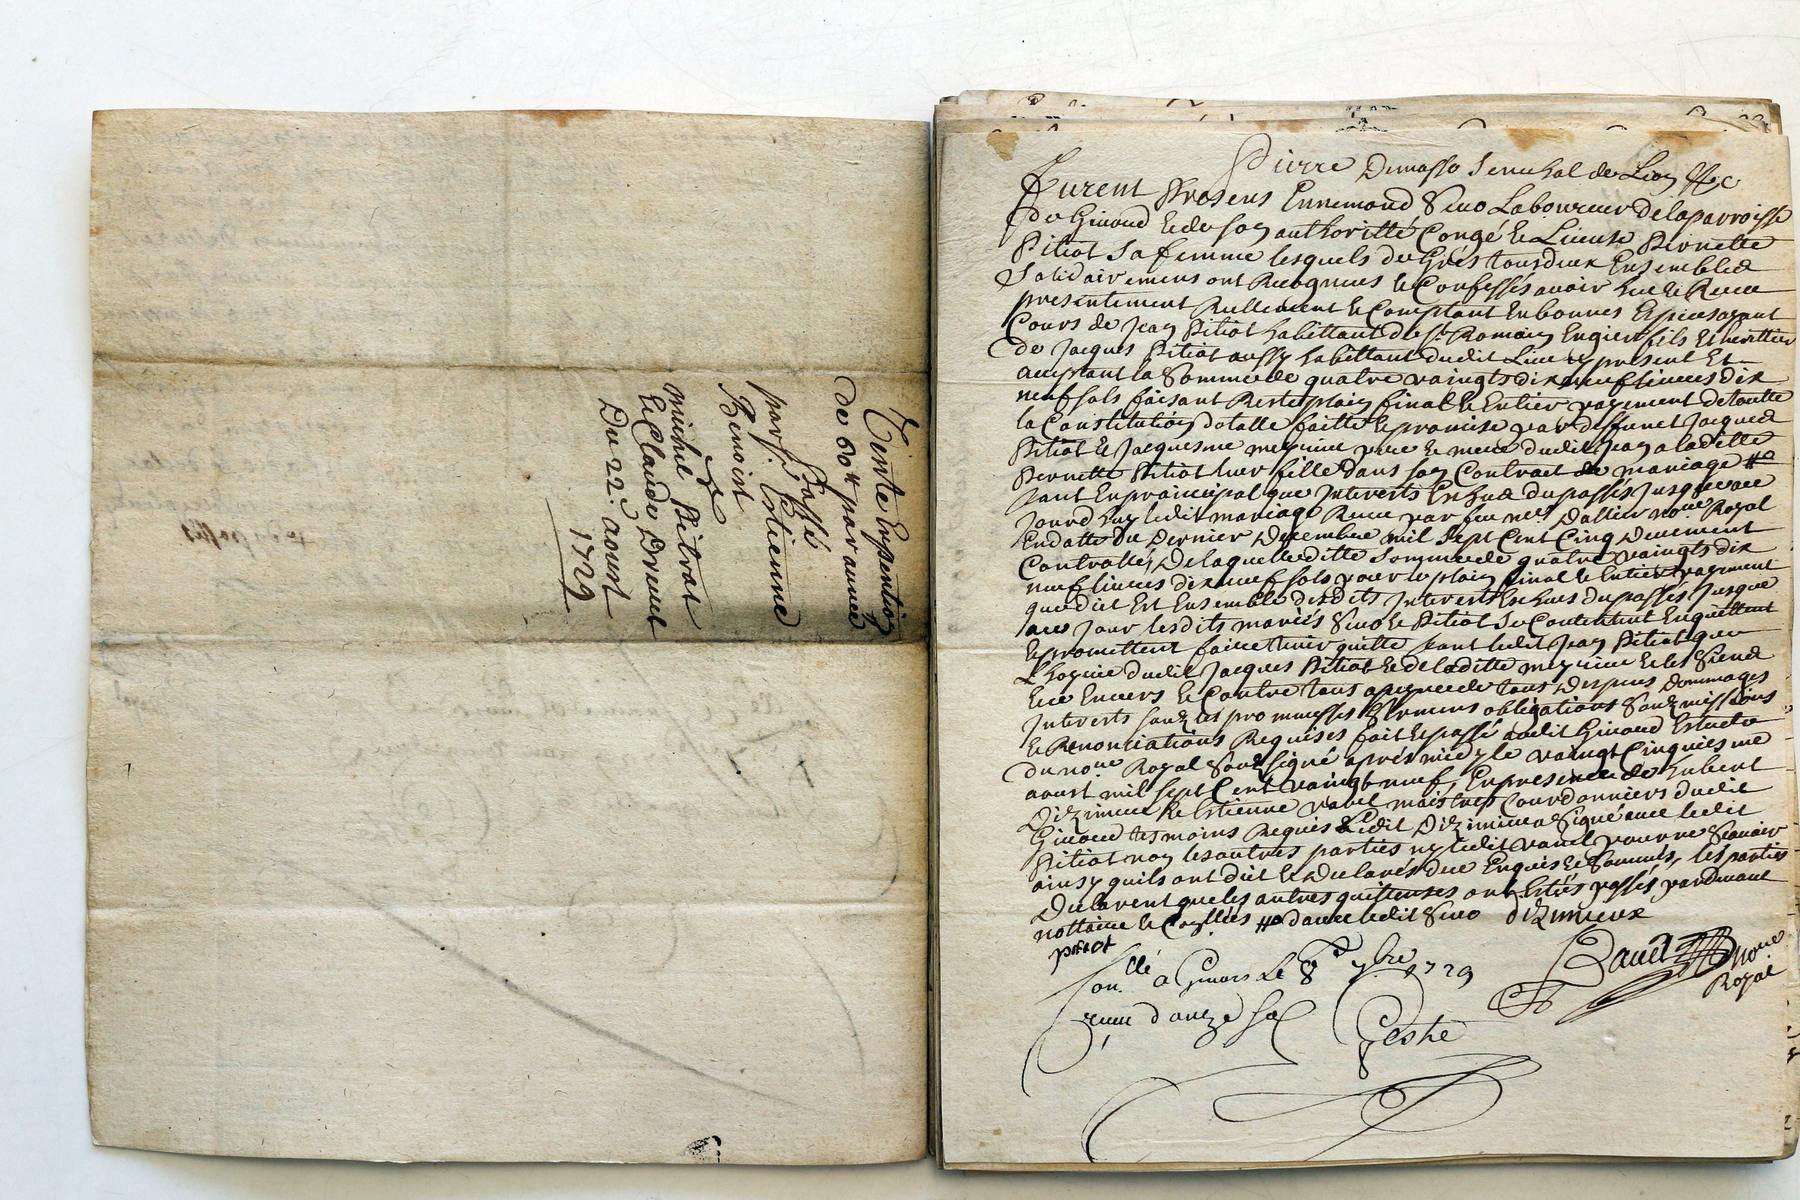 Vente Exp pention
de 60 ₶ par année
passé
par s.r Estienne
Benoist
a
michel Pitrat
et Claude Drevet
Du 22.e aoust
1729
Pierre Dumasso Senechal de Lion &c
furent Presens Ennemond Sino Laboureur de la parroisse
de Givord et de son authoritté Congé et License Pernette
Pitiot sa femme lesquels de Grés tous deux Ensembles
Solidairemens ont Recognus et Confessés avoir heu et Receu
presentement Reellement et Comptant En bonnes Espices ayant
Cours de Jean Pitiot habittant de st Romain Engier fils Et herittier
de Jacques Pitiot aussy habittant dudit Lieu cy present Et
aceptant la Somme de quatre vaingts dix neuf livres dix
neuf sols faisant Reste plain final et Entier payement de toutte
la Constitution dotalle faitte et promise par deffunct Jacques
Pitiot et Jacquesme meynine pere et mere dudit Jean a laditte
Pernette Pitiot leur fille dans son Contrait de mariage #
tant En praincipal que Interests Escheus du passés Jusques a ce
Jourd huy ledit mariage Receu par feu me. Dallier noue. Royal
En datte du Dernier Decembre mil Sept Cent Cinq Deuement
Contrallés, De laquelleditte Somme de quatre vaingts dix
neuf livres dix neuf sols pour le plain final et Entier payement
que dict Est Ensemble desdits Interests Escheus du passés Jusque
a ce Jour lesdits mariés Sino et Pitiot Se Contentent En quittent
et promettent faire tenir quitte tant ledit Jean Pitiot que
L'hoyrie dudit Jacques Pitiot et de laditte meynine et les Siens
Envers et Contre tous apeyne de tous Despens dommages
Interests sous les promesses Sermens obligations Soubmissions
et Renonciations Requises fait et passé audit Givord Estude
du noue. Royal Soubsigné aprés midy le vaingt Cinquiesme
aoust mil Sept Cent vaingt neuf, En presence de hubert
Dizimieux et Estienne vanel maistres Courdonniers dudit
Givord tesmoins Requis Ledit Dizimieux a Signé avec ledit
Pitiot non les autres parties ny ledit vanel pour ne Scavoir
ainsy quils ont dict et Declarés de ce Enquis et Sommés, les parties
Declarent que les autres quittenses ont Estés passés par devant
nottaire et Conttés # davec ledit Sino dizimieux
pitiot
Con.llé a Givors Le 8e 7bre 1729
receu douze sol
Geste
Bauel noue
Royal